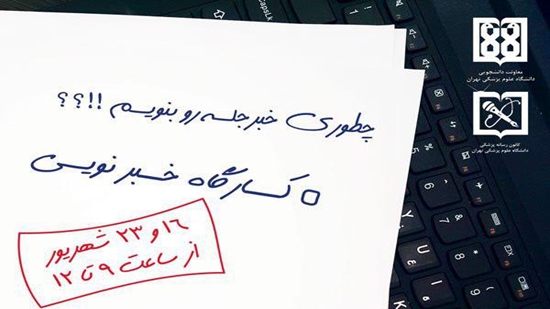 معاونت دانشجویی
دانشگاه علوم پزشکی تهران
کانون رسانه پزشکی
دانشگاه علوم پزشکی تهران
چطوری خبر جلسه رو بنویسم !!؟؟
کارگاه خبر نویسی
۱۶ و ۲۳ شهریور
از ساعت ۹ تا ۱۲
CapsLk